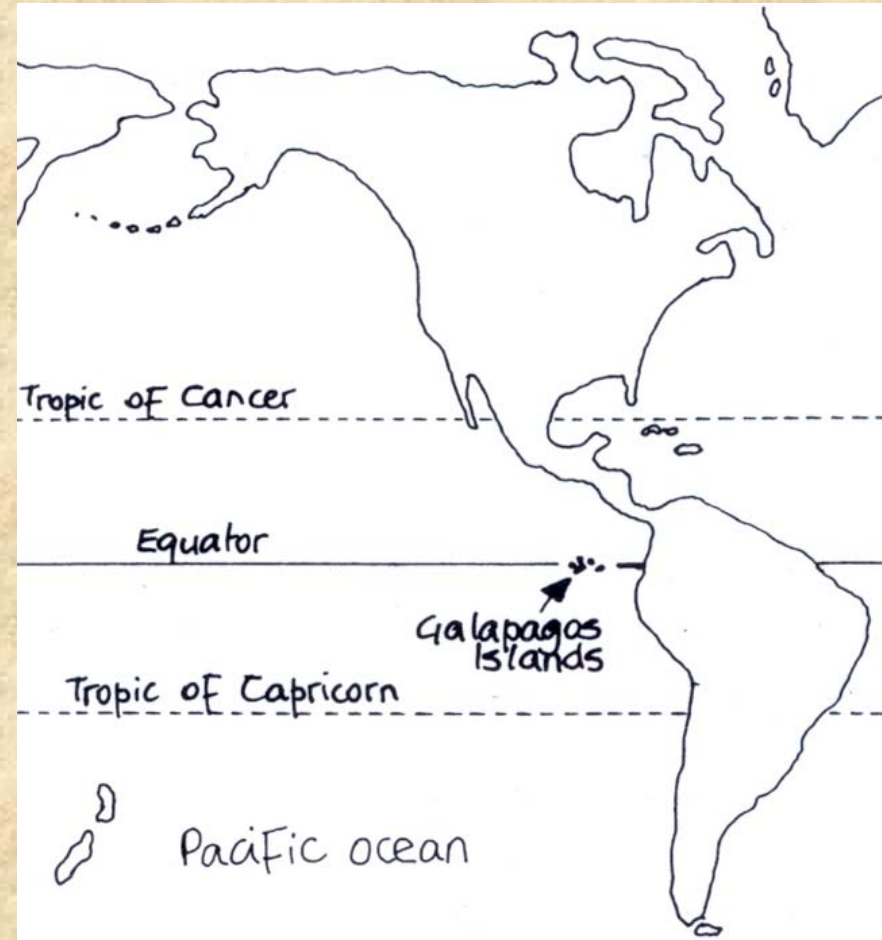 Tropic of Cancer
Equator
Galapagos
Islands
Tropic of Capricorn
Pacific ocean